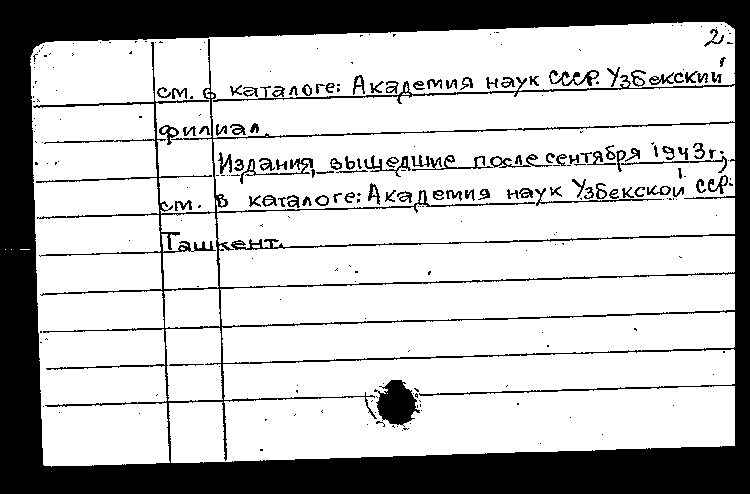 2.
см. в каталоге: Академия наук СССР. Узбекский
филиал.
Издания, вышедшие после сентября 1943 г.,
см. в каталоге: Академия наук Узбекской ССР.
Ташкент.